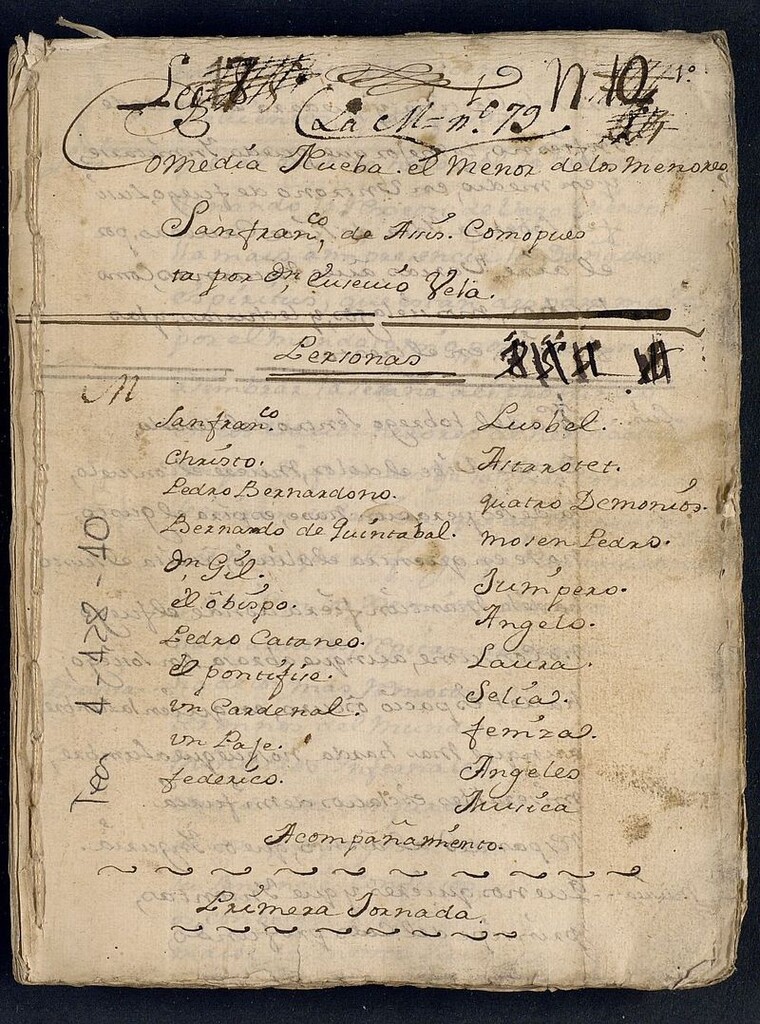 Leg 17 n 10 1º
B La M- n.º 79
Comedia Nueba. el Menor de los Menores
San fran.co de Asis. Compues
ta por Dn, Eusevio Vela.
Personas
M
San fran.co
Christo.
Pedro Bernardono.
Bernardo de Quintabal.
Dn Gil.
el obispo.
Pedro Cataneo.
el pontifise.
un Cardenal.
un Paje.
federico.
Lusbel.
Astarotet.
quatro Demonios.
mosen Pedro.
Junipero.
Angelo.
Laura.
Selia.
feniza.
Angeles
Musica
Acompañamiento.
Primera Jornada.
Tea 4-428-40